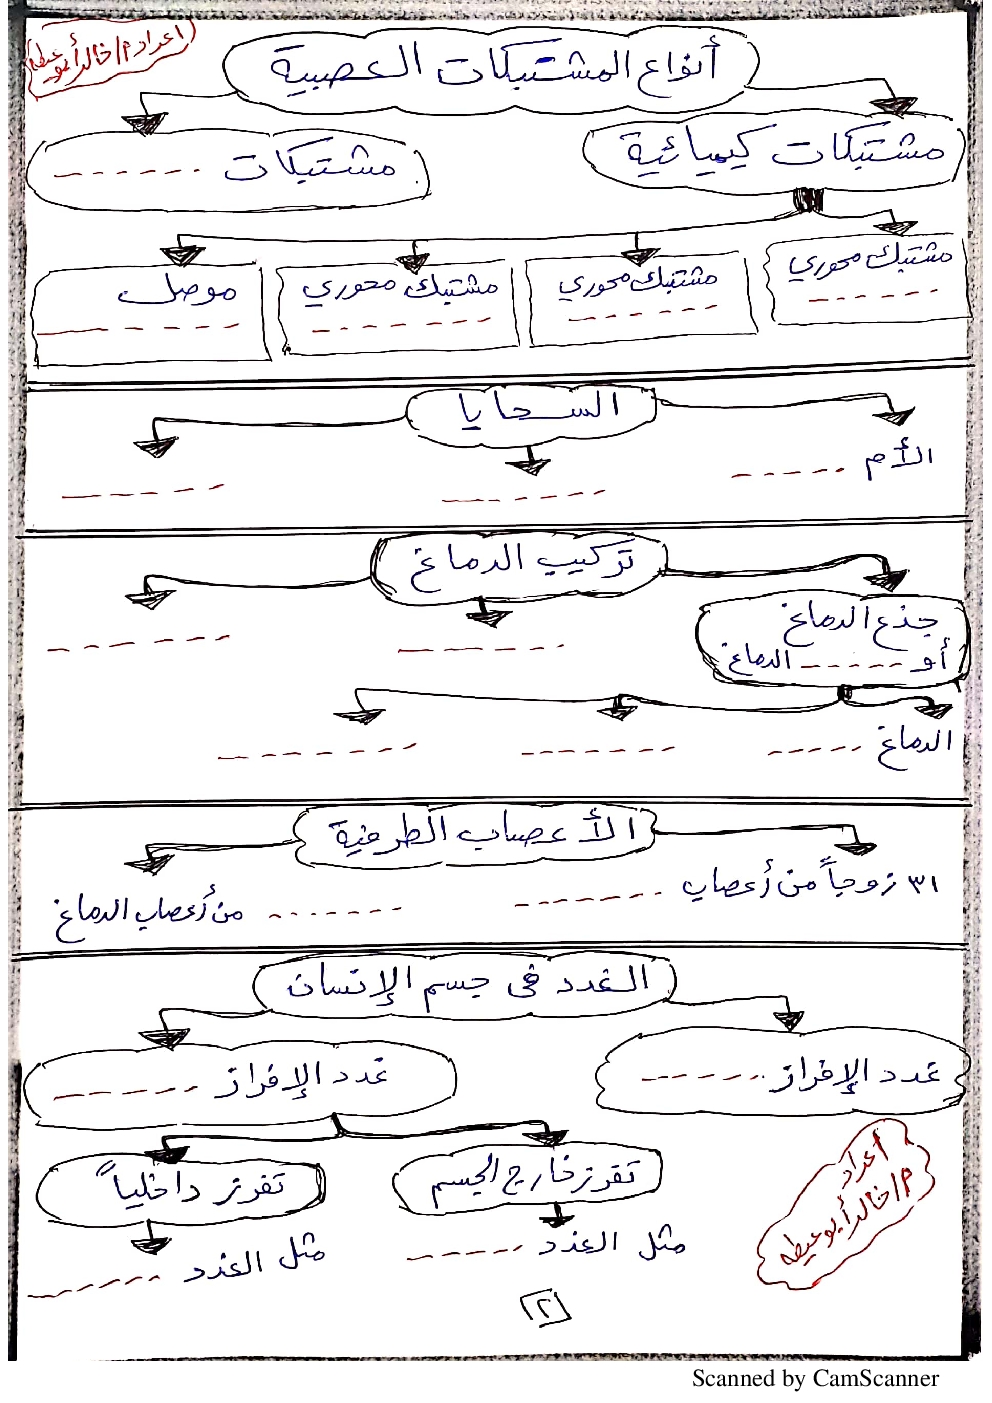 اعداد م/خالد أبو عيطه
أنواع المشتبكات العصبية
مشتبكات كيميائية
مشتبكات ------
مشتبك محوري
------
مشتبك محوري
------
مشتبك محوري
------
موصل
------
السحايا
الأم ------
------
------
تركيب الدماغ
جذع الدماغ
أو ------ الدماغ
------
------
الدماغ ------
------
------
الأعصاب الطرفية
٣١ زوجاً من أعصاب ------
------ من أعصاب الدماغ
الغدد في جسم الإنسان
غدد الإفراز ------
غدد الإفراز ------
تفرز خارج الجسم
تفرز داخلياً
مثل الغدد ------
مثل الغدد ------
اعداد
م/خالد أبو عيطه
٢
Scanned by CamScanner